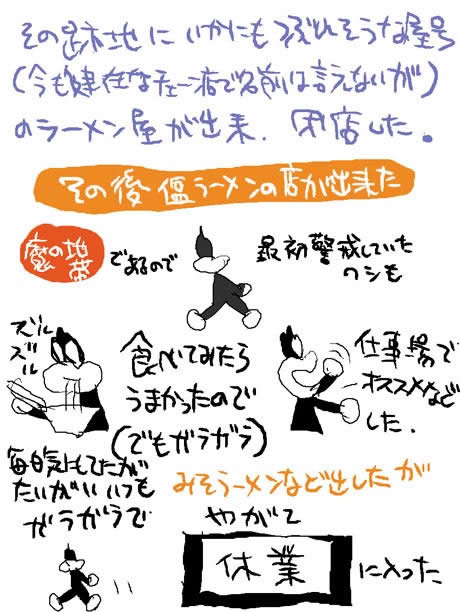 その跡地に いかにも つぶれそうな屋号
(今も健在なチェーン店で名前は言えないが)
のラーメン屋が出来、閉店した。
その後 傴ラーメンの店が出来た
魔の地帯
であるので
最初警戒していた
ワシも
ズルズル
食べてみたら
うまかったので
(でもガラガラ)
仕事場で
オススメなど
した.
毎日気にしてたが
たいがい いつも
ガラガラで
みそラーメンなど出したが
やがて
休業
に入った